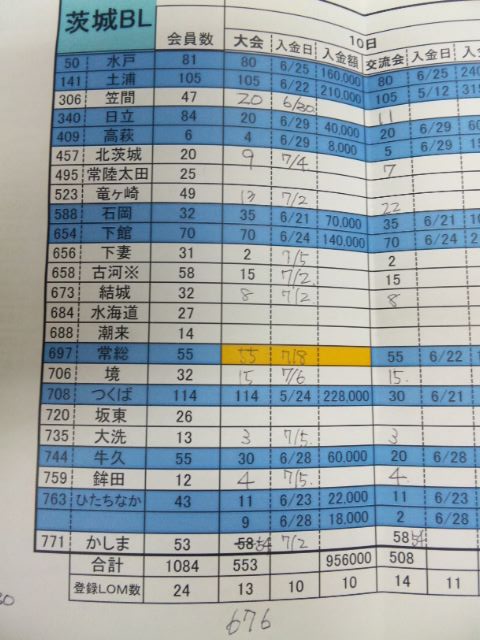 茨城BL 10日
会員数 大会 入金日 入金額 交流会 入金日 入
50 水戸 81 80 6/25 160,000 80 6/25 240
141 土浦 105 105 6/22 210,000 105 5/12 315
306 笠間 47 20 6/30 11
340 日立 84 20 6/29 40,000 20 6/29 60
409 高萩 6 4 6/29 8,000 5 6/29 1
457 北茨城 20 9 7/4 7
495 常陸太田 25
523 竜ヶ崎 49 13 7/2 22
588 石岡 32 35 6/21 70,000 35 6/21 10
654 下館 70 70 6/24 140,000 70 6/24 2
656 下妻 31 2 7/5 2
658 古河※ 58 15 7/2 15
673 結城 32 8 7/2 8
684 水海道 27
688 潮来 14
697 常総 55 55 7/8 55 6/22 1
706 境 32 15 7/6 15
708 つくば 114 114 5/24 228,000 30 6/21
720 坂東 26
735 大洗 13 3 7/5 3
744 牛久 55 30 6/28 60,000 20 6/28
759 鉾田 12 4 7/5 4
763 ひたちなか 43 11 6/23 22,000 11 6/23
9 6/28 18,000 2 6/28
771 かしま 53 58 54 7/2 58 54
合計 1084 553 956000 508
登録LOM数 24 13 10 10 14 11
676